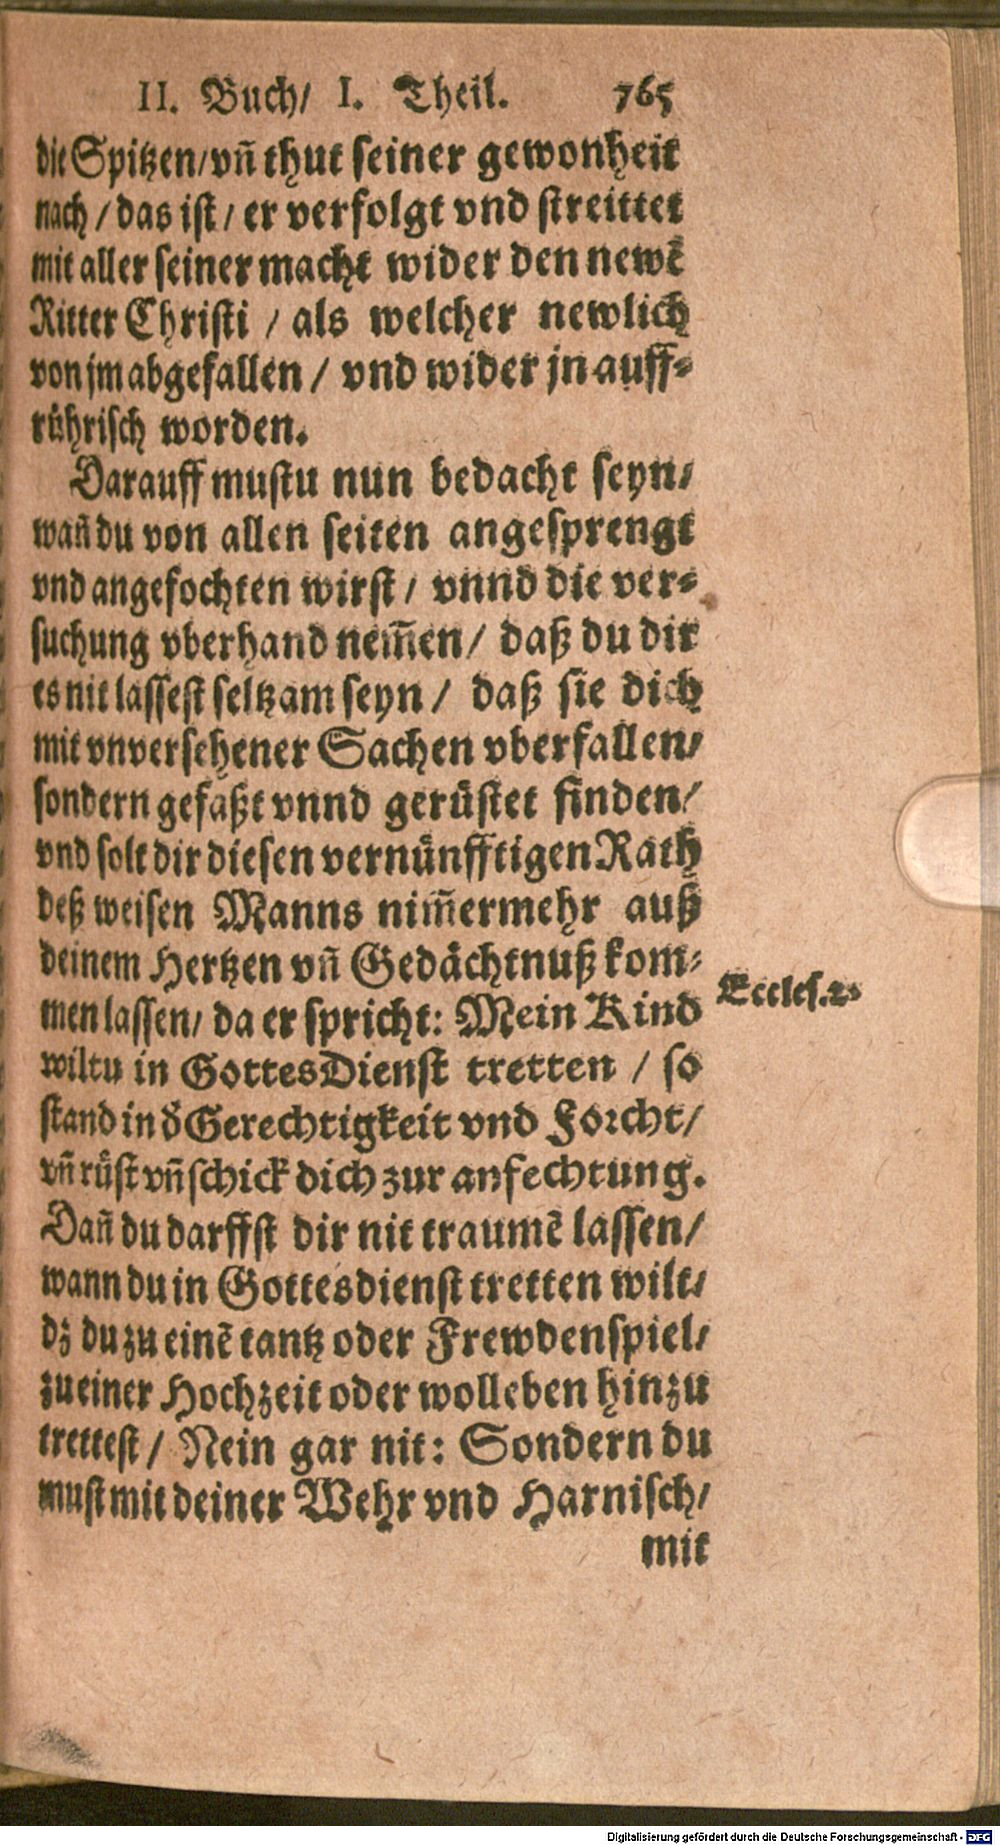 II. Buch/ I. Theil. 765
die Spitzen/ vñ thut seiner gewonheit
nach / das ist / er verfolgt vnd streittet
mit aller seiner macht wider den newẽ
Ritter Christi / als welcher newlich
von jm abgefallen / vnd wider jn auff-
rührisch worden.
Darauff mustu nun bedacht seyn/
wañ du von allen seiten angesprengt
vnd angefochten wirst / vnnd die ver-
suchung vberhand nem̃en / daß du dir
es nit lassest seltzam seyn / daß sie dich
mit vnversehener Sachen vberfallen/
sondern gefaßt vnnd gerüstet finden/
vnd solt dir diesen vernünfftigen Rath
deß weisen Manns nim̃ermehr auß
deinem Hertzen vñ Gedächtnuß kom-
men lassen/ da er spricht: Mein Kind
Eccles.2.
wiltu in GottesDienst tretten / so
stand in d̕ Gerechtigkeit vnd Forcht/
vñ rüst vñ schick dich zur anfechtung.
Dañ du darffst dir nit traumẽ lassen/
wann du in Gottesdienst tretten wilt/
dz du zu einẽ tantz oder Frewdenspiel/
zu einer Hochzeit oder wolleben hinzu
trettest / Nein gar nit: Sondern du
must mit deiner Wehr vnd Harnisch/
mit
Digitalisierung gefördert durch die Deutsche Forschungsgemeinschaft - DFG